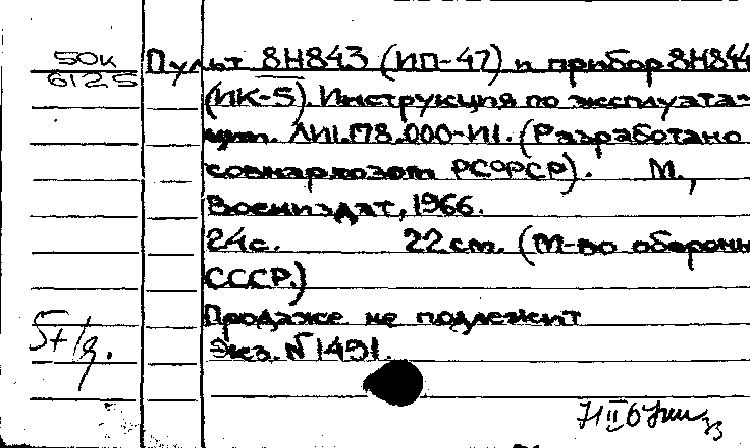 50к
6125
Пульт 8Н843 (ИП-47) и прибор 8Н844
(ИК-5). Инструкция по эксплуата-
ции. ЛИ1.178.000-И1. (Разработано
совнархозом РСФСР). М.,
Воениздат, 1966.
24с. 22 см. (М-во обороны
СССР.)
Продаже не подлежит
Экз. N 1491.
5+1д.